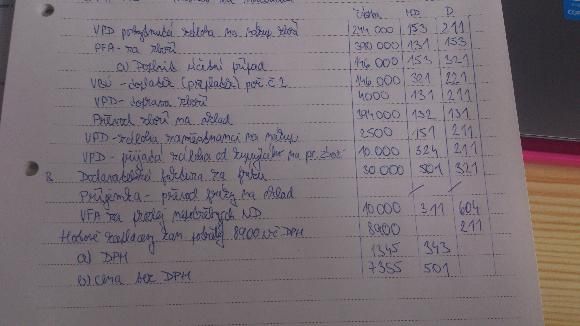 částka MD D
VPD poskytnutá záloha na nákup zboží 244 000 153 211
PFA - za zboží 390 000 131 153
a) Doplňte účetní případ 146 000 153 321
VBÚ - doplatek (přeplatek) poř. č. 2 146 000 321 221
VPD - doprava zboží 4000 131 211
Převod zboží na sklad 394 000 132 131
VPD - záloha zaměstnanci na nákup 2500 151 211
VPD - přijatá záloha od 10.000 324 211
8. Dodavatelská faktura za 30 000 501 321
Příjemka - převod na sklad
VFA za prodej nepotřebných ND 10 000 311 604
Hotově zaplaceny kan. potřeby 8900 vč DPH 8900 211
a) DPH 1545 343
b) cena bez DPH 7355 501